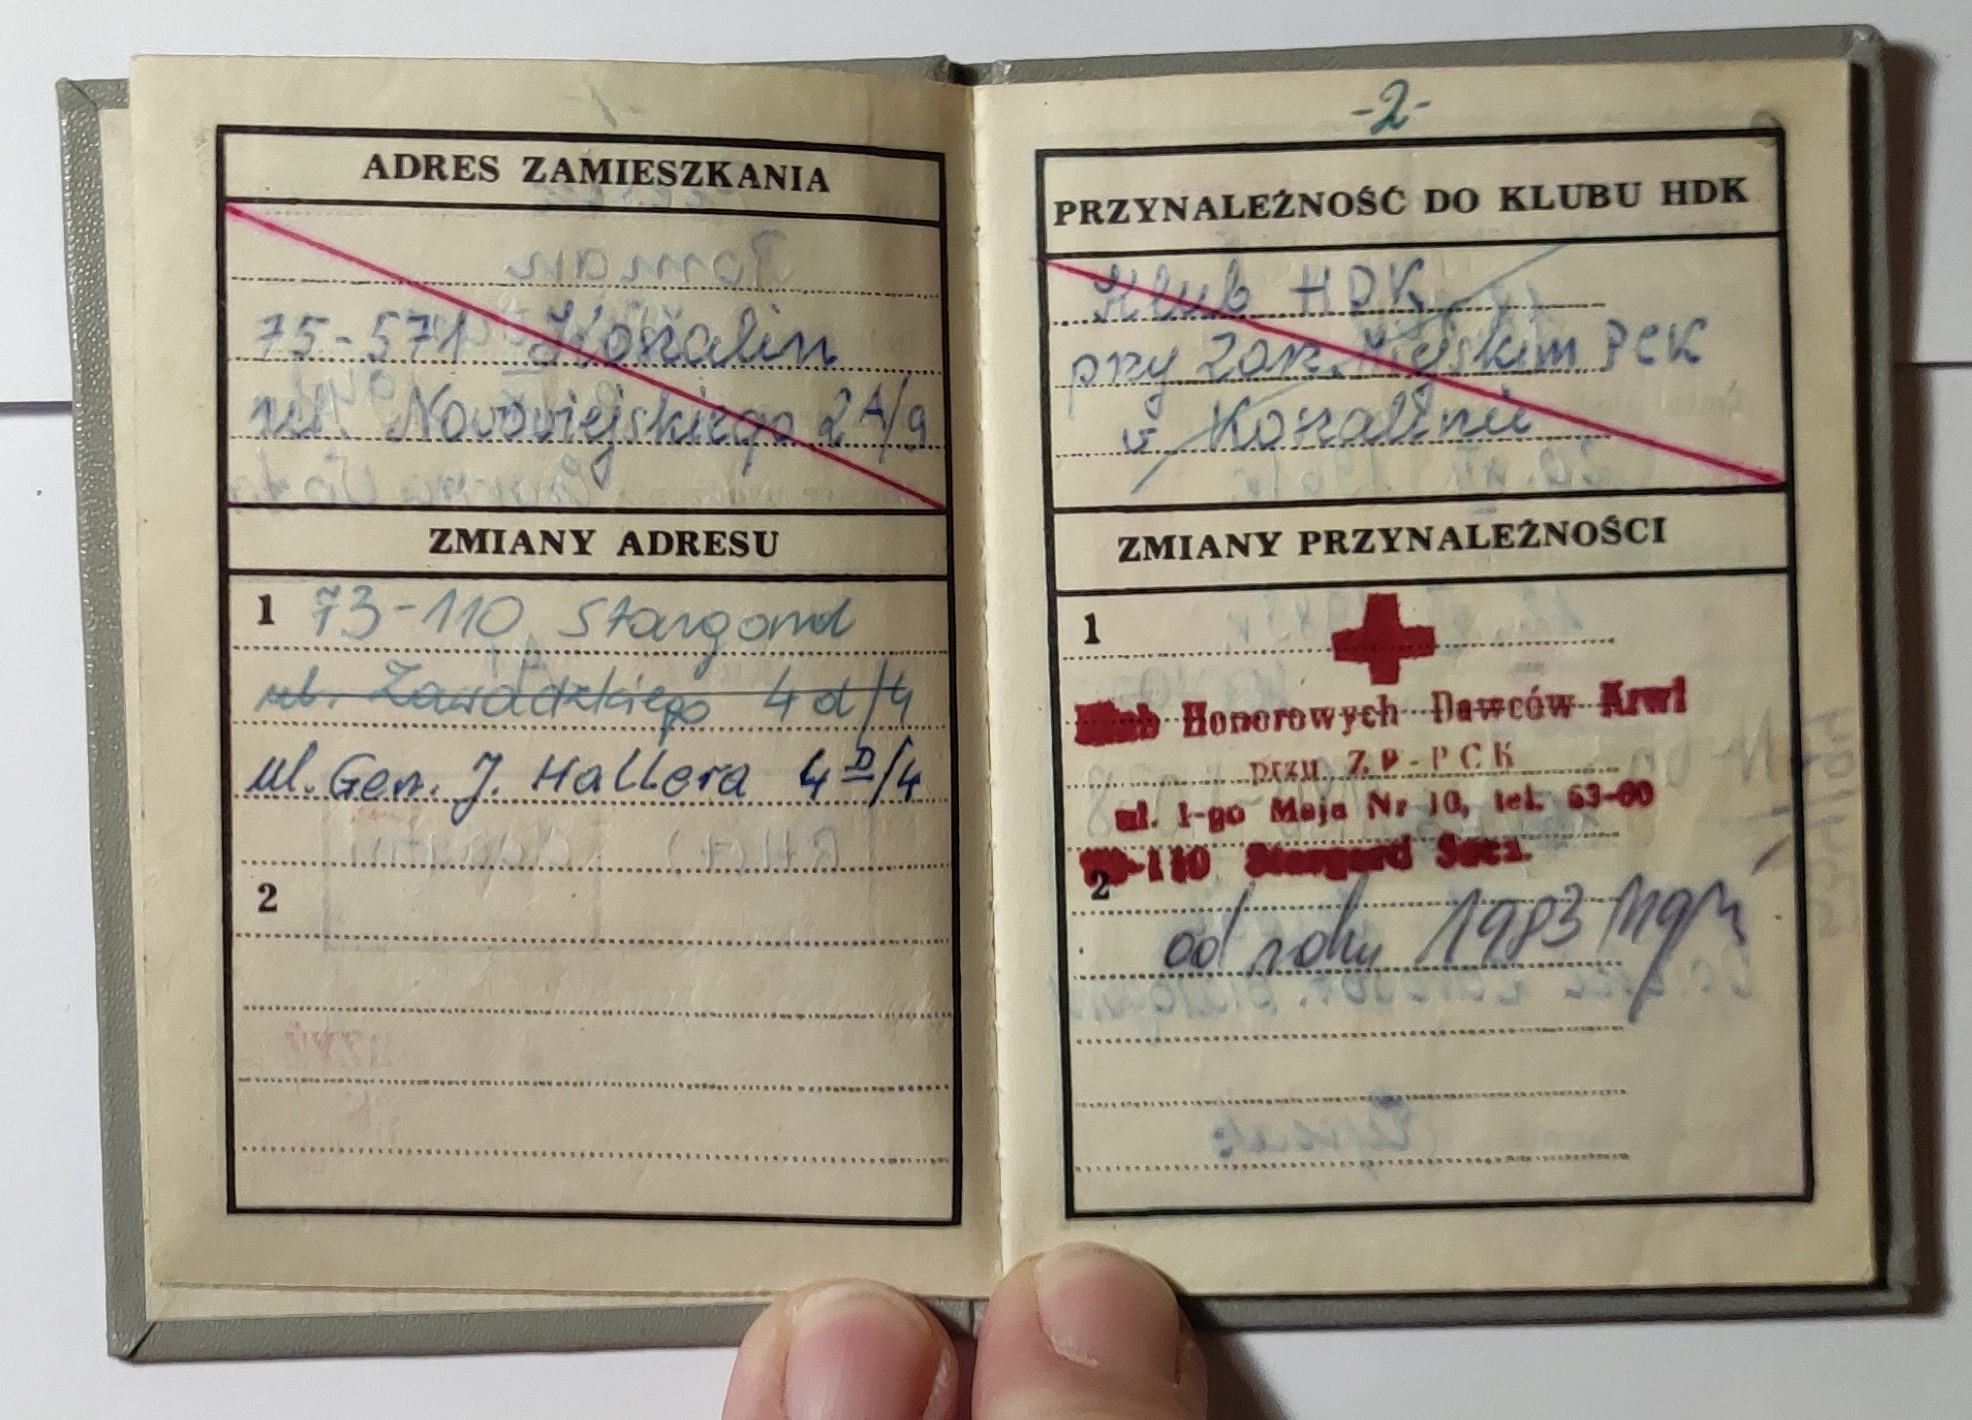 -1-
ADRES ZAMIESZKANIA
75-571 Koszalin
ul. Nowowiejskiego 2A/9
ZMIANY ADRESU
1 73-110 Stargard
ul. Zawadzkiego 4d/4
ul. Gen. J. Hallera 4D/4
2
-2-
PRZYNALEŻNOŚĆ DO KLUBU HDK
Klub HDK
przy Zarz. Miejskim PCK
w Koszalinie
ZMIANY PRZYNALEŻNOŚCI
1
Klub Honorowych Dawców Krwi
przy ZP-PCK
ul. 1-go Maja Nr 10, tel. 63-60
73-110 Stargard Szcz.
2
od roku 1983